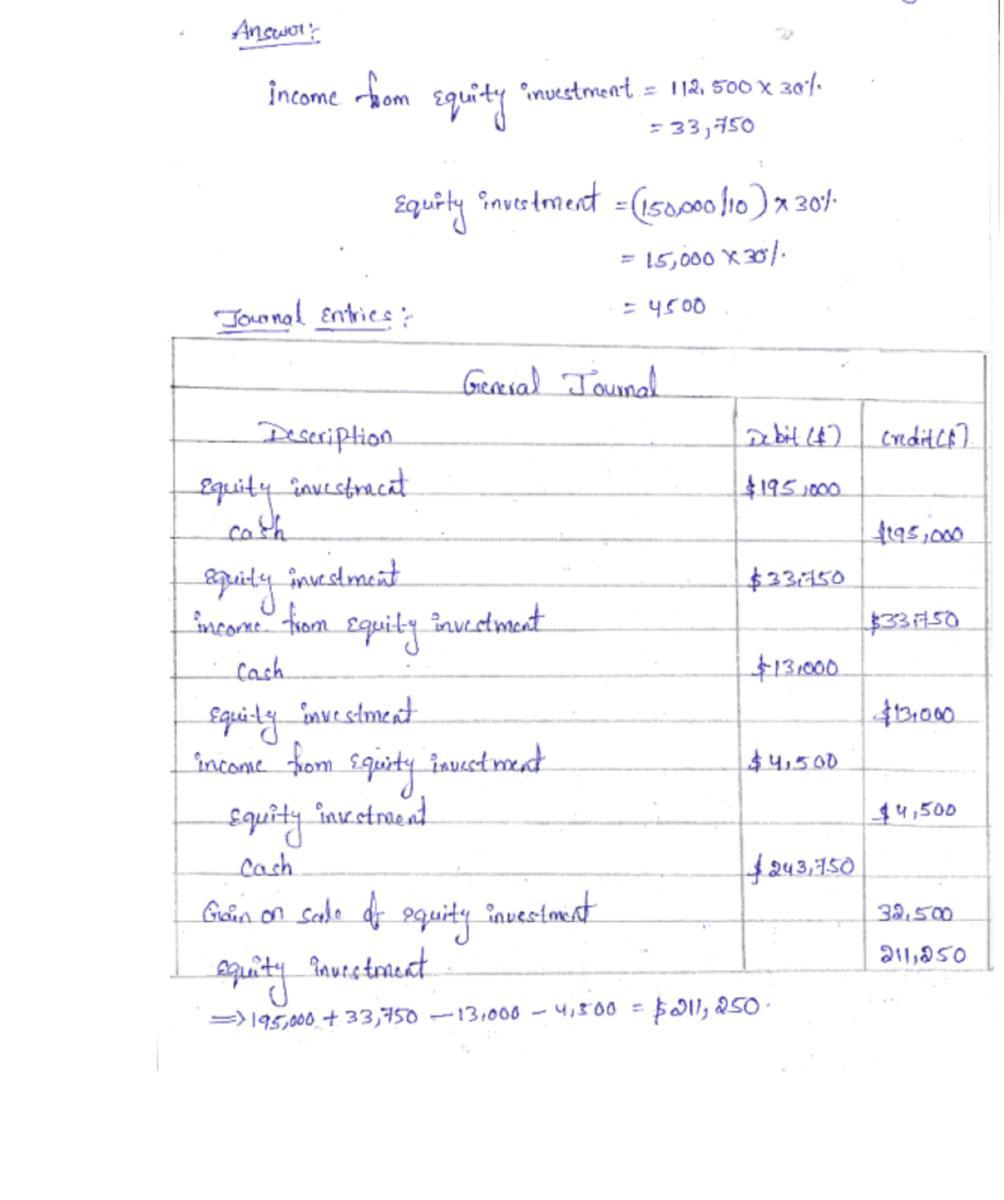 Answer:-
income from equity investment = 112,500 x 30%.
= 33,750
Equity investment = (150,000/10) x 30%.
= 15,000 x 30%.
= 4500
Journal Entries:-
General Journal
Description Debit ($) Credit ($)
Equity investment $195,000
Cash $195,000
Equity investment $33,750
income from Equity investment $33,750
Cash $13,000
Equity investment $13,000
income from Equity investment $4,500
Equity investment $4,500
Cash $243,750
Gain on sale of equity investment 32,500
equity investment 211,250
=> 195,000 + 33,750 - 13,000 - 4,500 = $211,250.